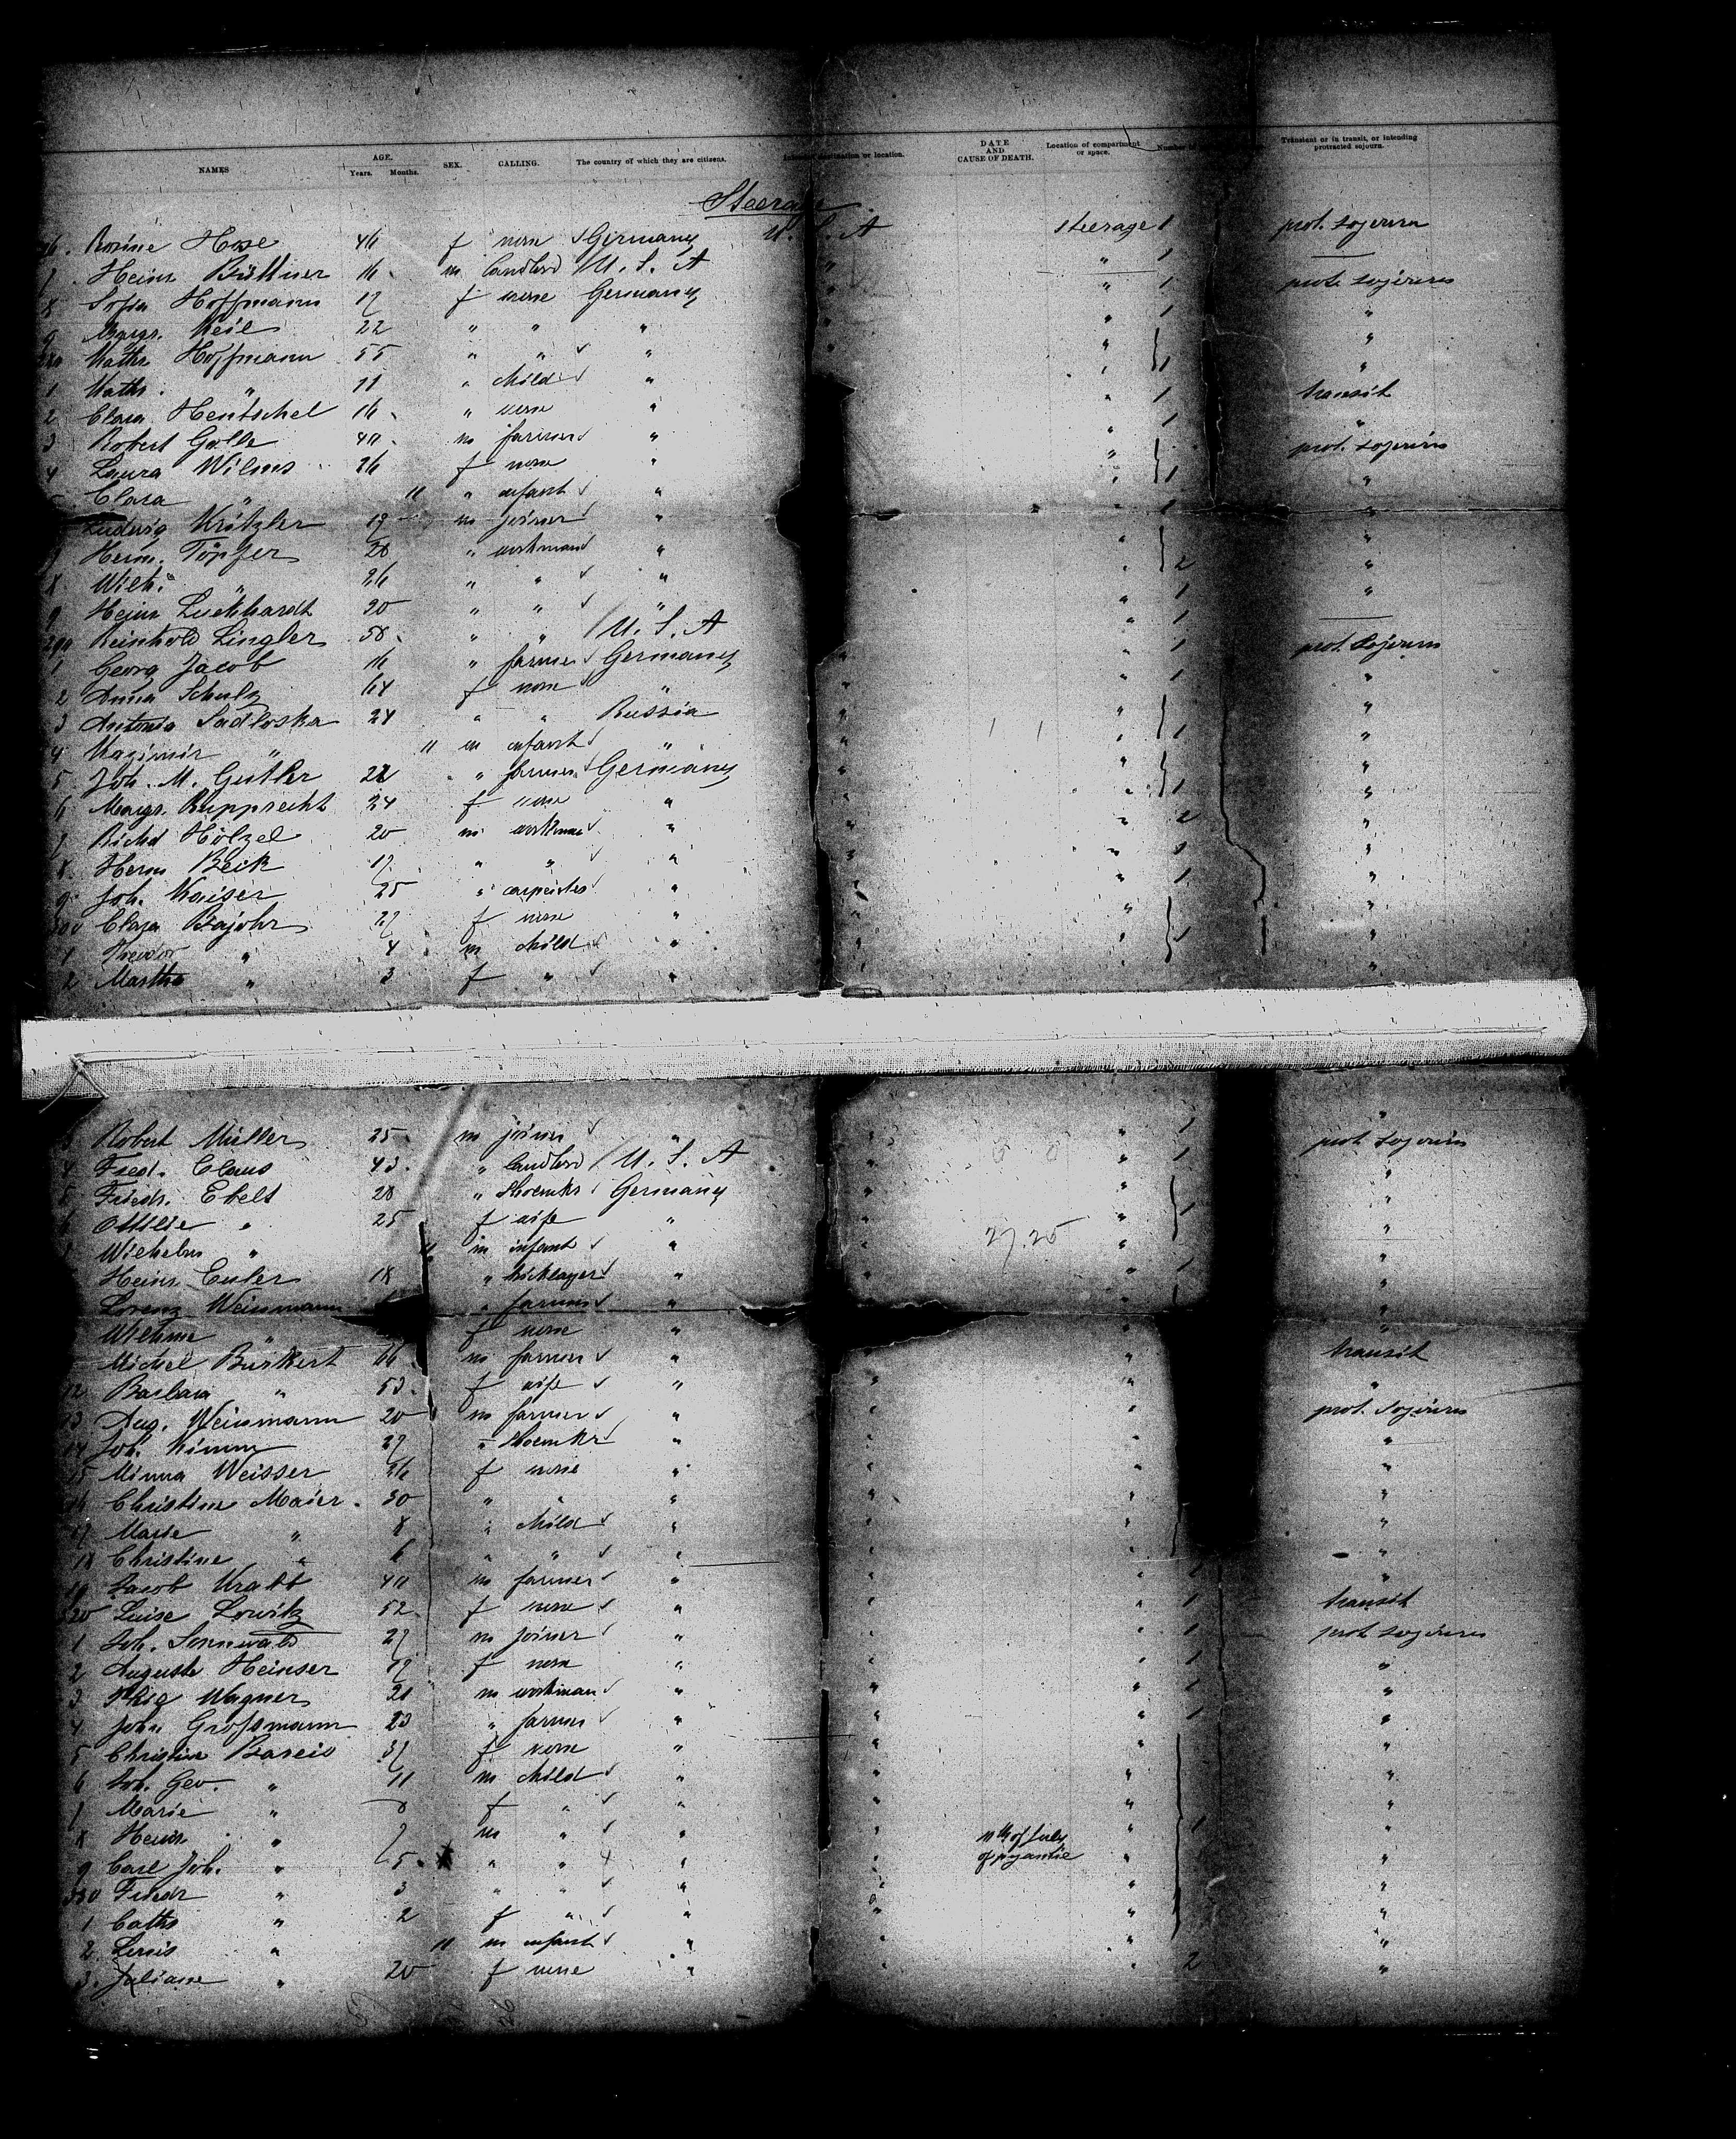 NAMES AGE. Years. Months. SEX. CALLING. The country of which they are citizens. destination or location. DATE AND CAUSE OF DEATH. Location of compartment or space. Number of Transient or in transit, or intending protracted sojourn.
Steerage
6. Rosine Hose 46 f none Germany U.S.A steerage 1 prot. sojourn
Heinr Büttner 16 m landlord U.S.A " " 1 —
8 Sofia Hoffmann 17 f none Germany " " 1 prot. sojourn
9 Margr. Keil 22 " " " " " 1 "
280 Kathr Hoffmann 55 " " " " " "
1 Kathr. " 11 " child " " 1 "
2 Clara Hentschel 16 " none " " 1 transit
3 Robert Golle 40 m farmer " " 1 "
4 Laura Wilms 26 f none " " prot. sojourn
5 Clara " 11 " infant " " 1 "
Ludwig Kritzler 19 m joiner " " 1 "
7 Herm. Töpfer 28 " workman " " "
8 Wilh. " 26 " " " " 2 "
9 Heinr Luckhardt 20 " " " " 1 "
290 Reinhold Lingler 58 " " U.S.A " 1 —
1 Georg Jacob 16 " farmer Germany " " 1 prot. sojourn
2 Anna Schulz 64 f none " " " 1 "
3 Antonia Sadloska 24 " " Russia " " "
4 Kazimir " 11 m infant " " " 1 "
5 Joh. M. Gutler 22 " farmer Germany " " "
6 Margr. Rupprecht 24 f none " " " 1 "
7 Richd Hölzel 20 m workman " " " 2 "
8 Herm Beck 19 " " " " " "
9 Joh. Kaiser 25 " carpenter " " " 1 "
300 Clara Bajohr 27 f none " " " "
1 Theodor " 4 m child " " " 1 "
2 Martha " 3 f " " "
3 Robert Müller 25 m joiner " " " 1 prot. sojourn
4 Fred. Claus 43 " landlord U.S.A " " 1 "
5 Friedr. Ebelt 28 " shoemkr Germany " " "
6 Ottilie " 25 f wife " " " 1 "
7 Wilhelm " 11 m infant " " " "
Heinr Euler 18 " bricklayer " " " 1 "
Lorenz Weinmann " farmer " " "
Wilhme " f none " " "
Michel Burkert 66 m farmer " " " transit
12 Barbara " 53 f wife " " " "
13 Aug. Weinmann 20 m farmer " " " prot. sojourn
14 Joh. Kimm 27 " shoemkr " " " "
15 Minna Weisser 26 f none " " " "
16 Christine Maier 30 " " " " " "
17 Marie " 8 " child " " " "
18 Christine " 6 " " " "
19 Jacob Krabb 40 m farmer " " "
320 Luise Lowitz 52 f none " " 1 transit
1 Joh. Sonnwald 27 m joiner " " " 1 prot. sojourn
2 Auguste Heinser 19 f none " " " 1 "
3 Phil Wagner 21 m workman " " " 1 "
4 John Großmann 23 " farmer " " " 1 "
5 Christine Bareis 37 f none " " " "
6 Joh. Geo. " 11 m child " " " "
7 Marie " 8 f " " " " "
8 Heinr " 7 m " " " " 1 "
9 Carl Joh. " 5 " " " 11th of July " "
330 Friedr " 3 " " " " " "
1 Cathr " 2 f " " " " "
2 Louis " 11 m infant " " "
3. Juliane " 20 f none " " 2 "
27.25
26